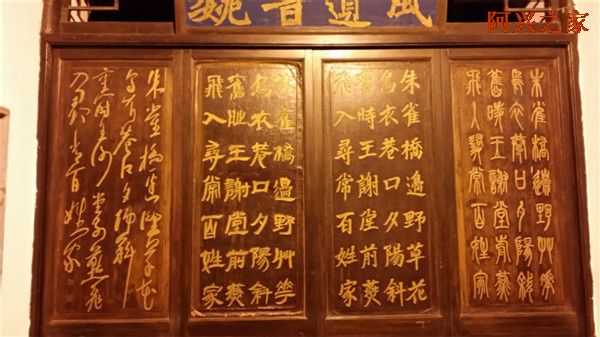 阿兴之家
朱雀橋邊野艸花
烏衣巷口夕陽斜
舊時王謝堂前燕
飛入尋常百姓家
朱雀橋邊野草花
烏衣巷口夕陽斜
舊時王謝堂前燕
飛入尋常百姓家
朱雀橋邊野艸華
烏衣巷口夕陽斜
舊時王謝堂前燕
飛入尋常百姓家
朱雀橋邊野草花
烏衣巷口夕陽斜
舊時王謝堂前燕飛
入尋常百姓家